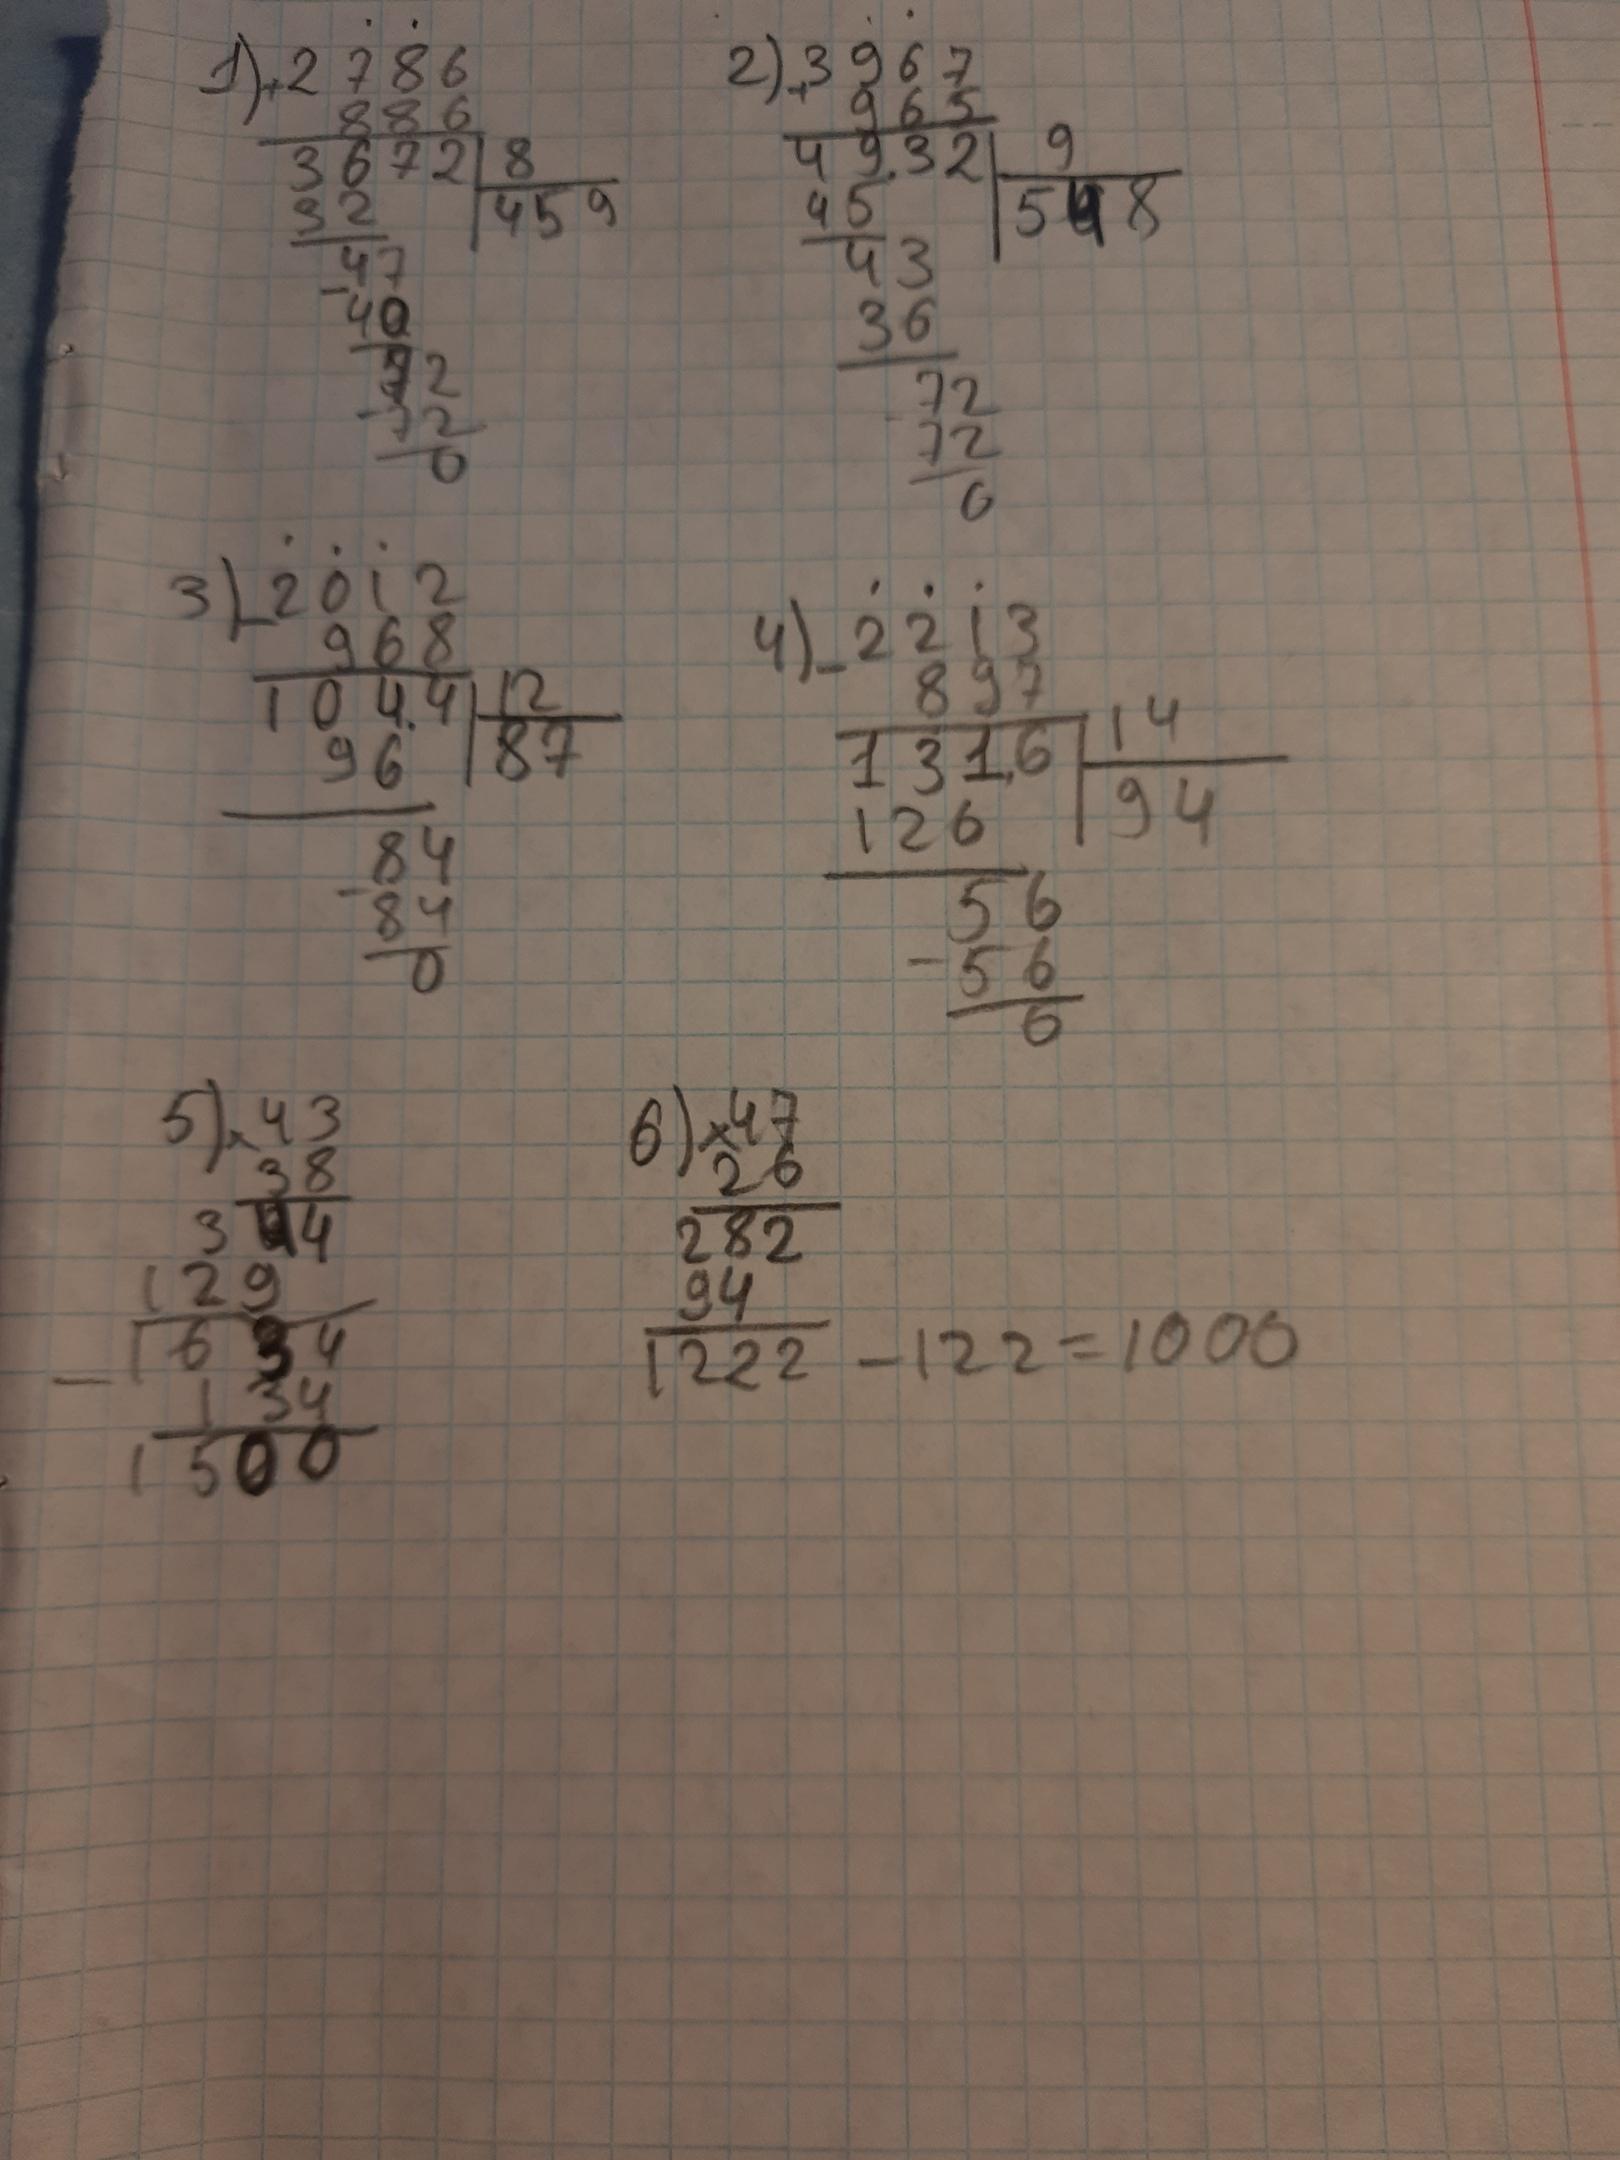 1) + 2786
886
3672 | 8
32 | 459
47
- 40
72
- 72
0
2) + 3967
965
4932 | 9
45 | 548
43
36
72
- 72
0
3) - 2012
968
1044 | 12
96 | 87
84
- 84
0
4) - 2213
897
1316 | 14
126 | 94
56
- 56
0
5) × 43
38
344
129
1634
- 134
1500
6) × 47
26
282
94
1222 - 122 = 1000